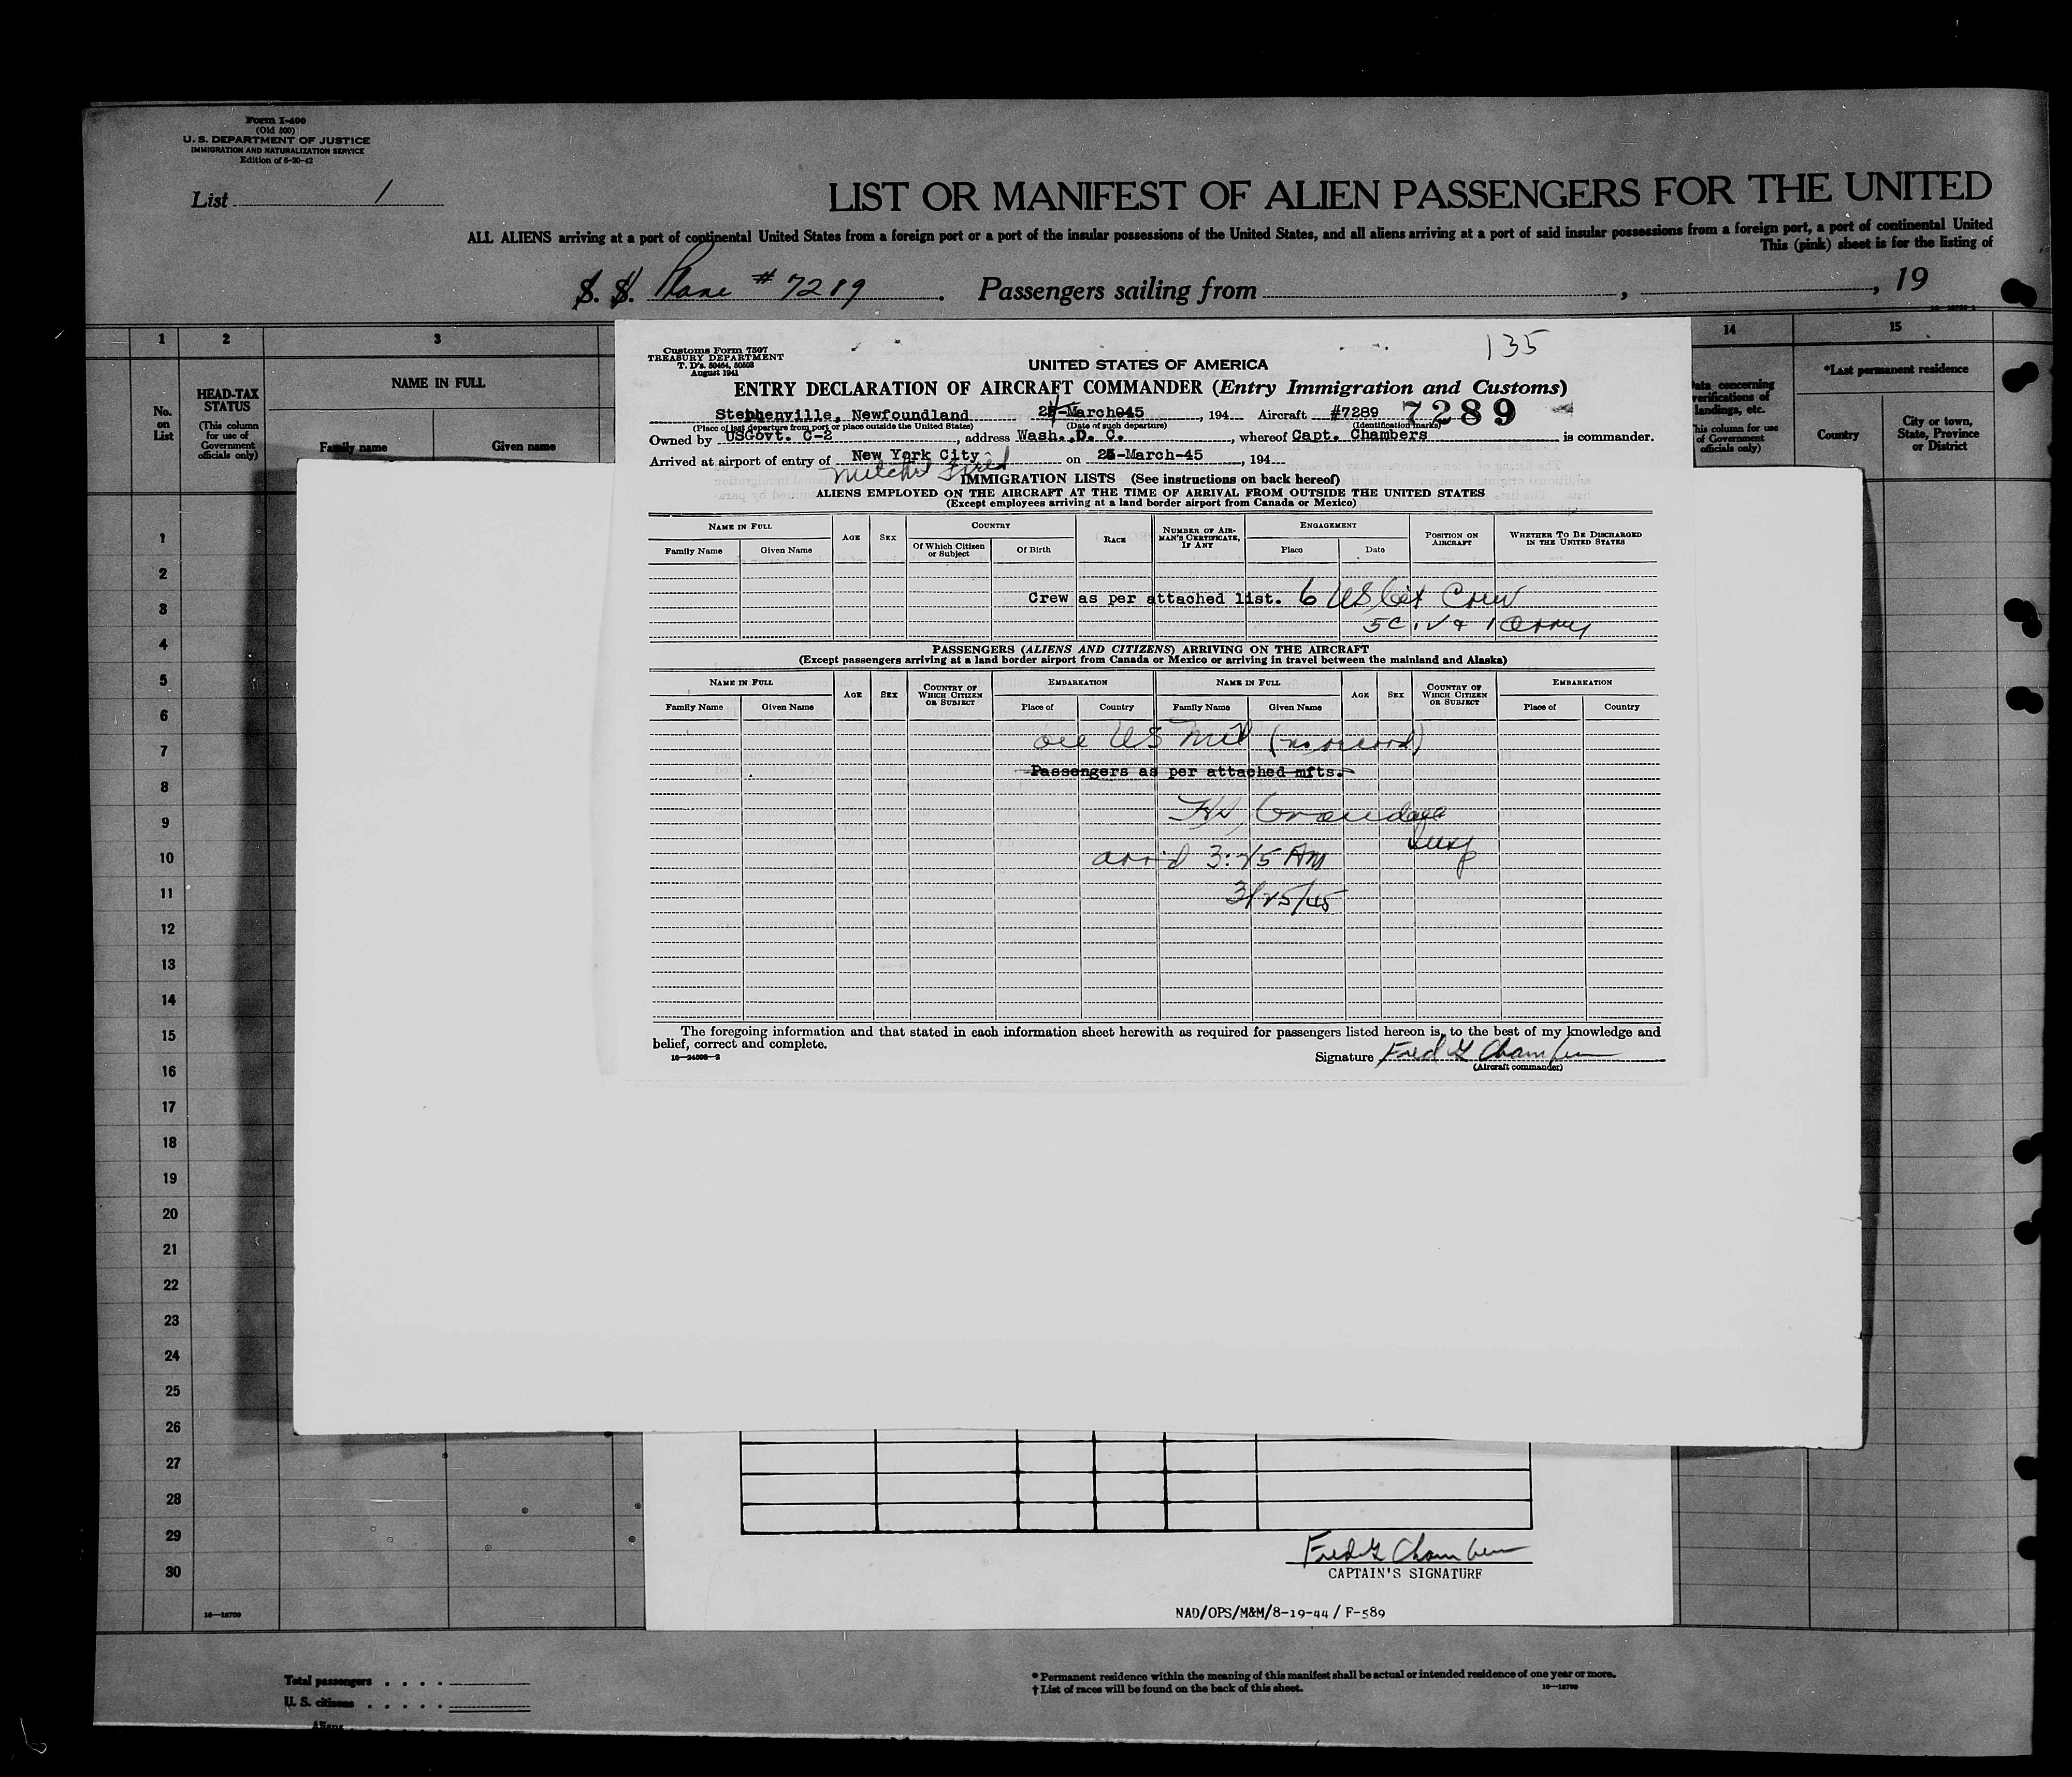 Form I-400
(Old 500)
U. S. DEPARTMENT OF JUSTICE
IMMIGRATION AND NATURALIZATION SERVICE
Edition of 6-20-42
List 1
LIST OR MANIFEST OF ALIEN PASSENGERS FOR THE UNITED
ALL ALIENS arriving at a port of continental United States from a foreign port or a port of the insular possessions of the United States, and all aliens arriving at a port of said insular possessions from a foreign port, a port of continental United
This (pink) sheet is for the listing of
S. S. Plane # 7289. Passengers sailing from , , 19
1 2 3 14 15
No. on List
HEAD-TAX STATUS
(This column for use of Government officials only)
NAME IN FULL
Family name Given name
verifications of landings, etc.
of Government officials only)
*Last permanent residence
Country
City or town, State, Province or District
Customs Form 7507
TREASURY DEPARTMENT
T. D's. 50464, 50503
August 1941
135
UNITED STATES OF AMERICA
ENTRY DECLARATION OF AIRCRAFT COMMANDER (Entry Immigration and Customs)
Stephenville, Newfoundland March 45, 194 Aircraft #7289 7289
(Place of last departure from port or place outside the United States) (Date of such departure) (Identification marks)
Owned by USGovt. C-2, address Wash., D. C., whereof Capt. Chambers is commander.
Arrived at airport of entry of New York City on 25-March-45, 194
Mitchel Field
IMMIGRATION LISTS (See instructions on back hereof)
ALIENS EMPLOYED ON THE AIRCRAFT AT THE TIME OF ARRIVAL FROM OUTSIDE THE UNITED STATES
(Except employees arriving at a land border airport from Canada or Mexico)
NAME IN FULL AGE SEX COUNTRY RACE NUMBER OF AIRMAN'S CERTIFICATE, IF ANY ENGAGEMENT POSITION ON AIRCRAFT WHETHER TO BE DISCHARGED IN THE UNITED STATES
Family Name Given Name Of Which Citizen or Subject Of Birth Place Date
Crew as per attached list. 6 US Cit Crew
5 Civ & 1 Army
PASSENGERS (ALIENS AND CITIZENS) ARRIVING ON THE AIRCRAFT
(Except passengers arriving at a land border airport from Canada or Mexico or arriving in travel between the mainland and Alaska)
NAME IN FULL AGE SEX COUNTRY OF WHICH CITIZEN OR SUBJECT EMBARKATION NAME IN FULL AGE SEX COUNTRY OF WHICH CITIZEN OR SUBJECT EMBARKATION
Family Name Given Name Place of Country Family Name Given Name Place of Country
all US Mil (no record)
Passengers as per attached mfts.
arrid 3:15 AM
3/25/45
The foregoing information and that stated in each information sheet herewith as required for passengers listed hereon is, to the best of my knowledge and
belief, correct and complete.
16—24598—2
Signature Fred G Chambers
(Aircraft commander)
1
2
3
4
5
6
7
8
9
10
11
12
13
14
15
16
17
18
19
20
21
22
23
24
25
26
27
28
29
30
Fred G Chambers
CAPTAIN'S SIGNATURE
NAD/OPS/M&M/8-19-44 / F-589
16—18709
Total passengers . . . .
U. S. citizens . . . . .
Aliens
* Permanent residence within the meaning of this manifest shall be actual or intended residence of one year or more.
† List of races will be found on the back of this sheet.
16—18709